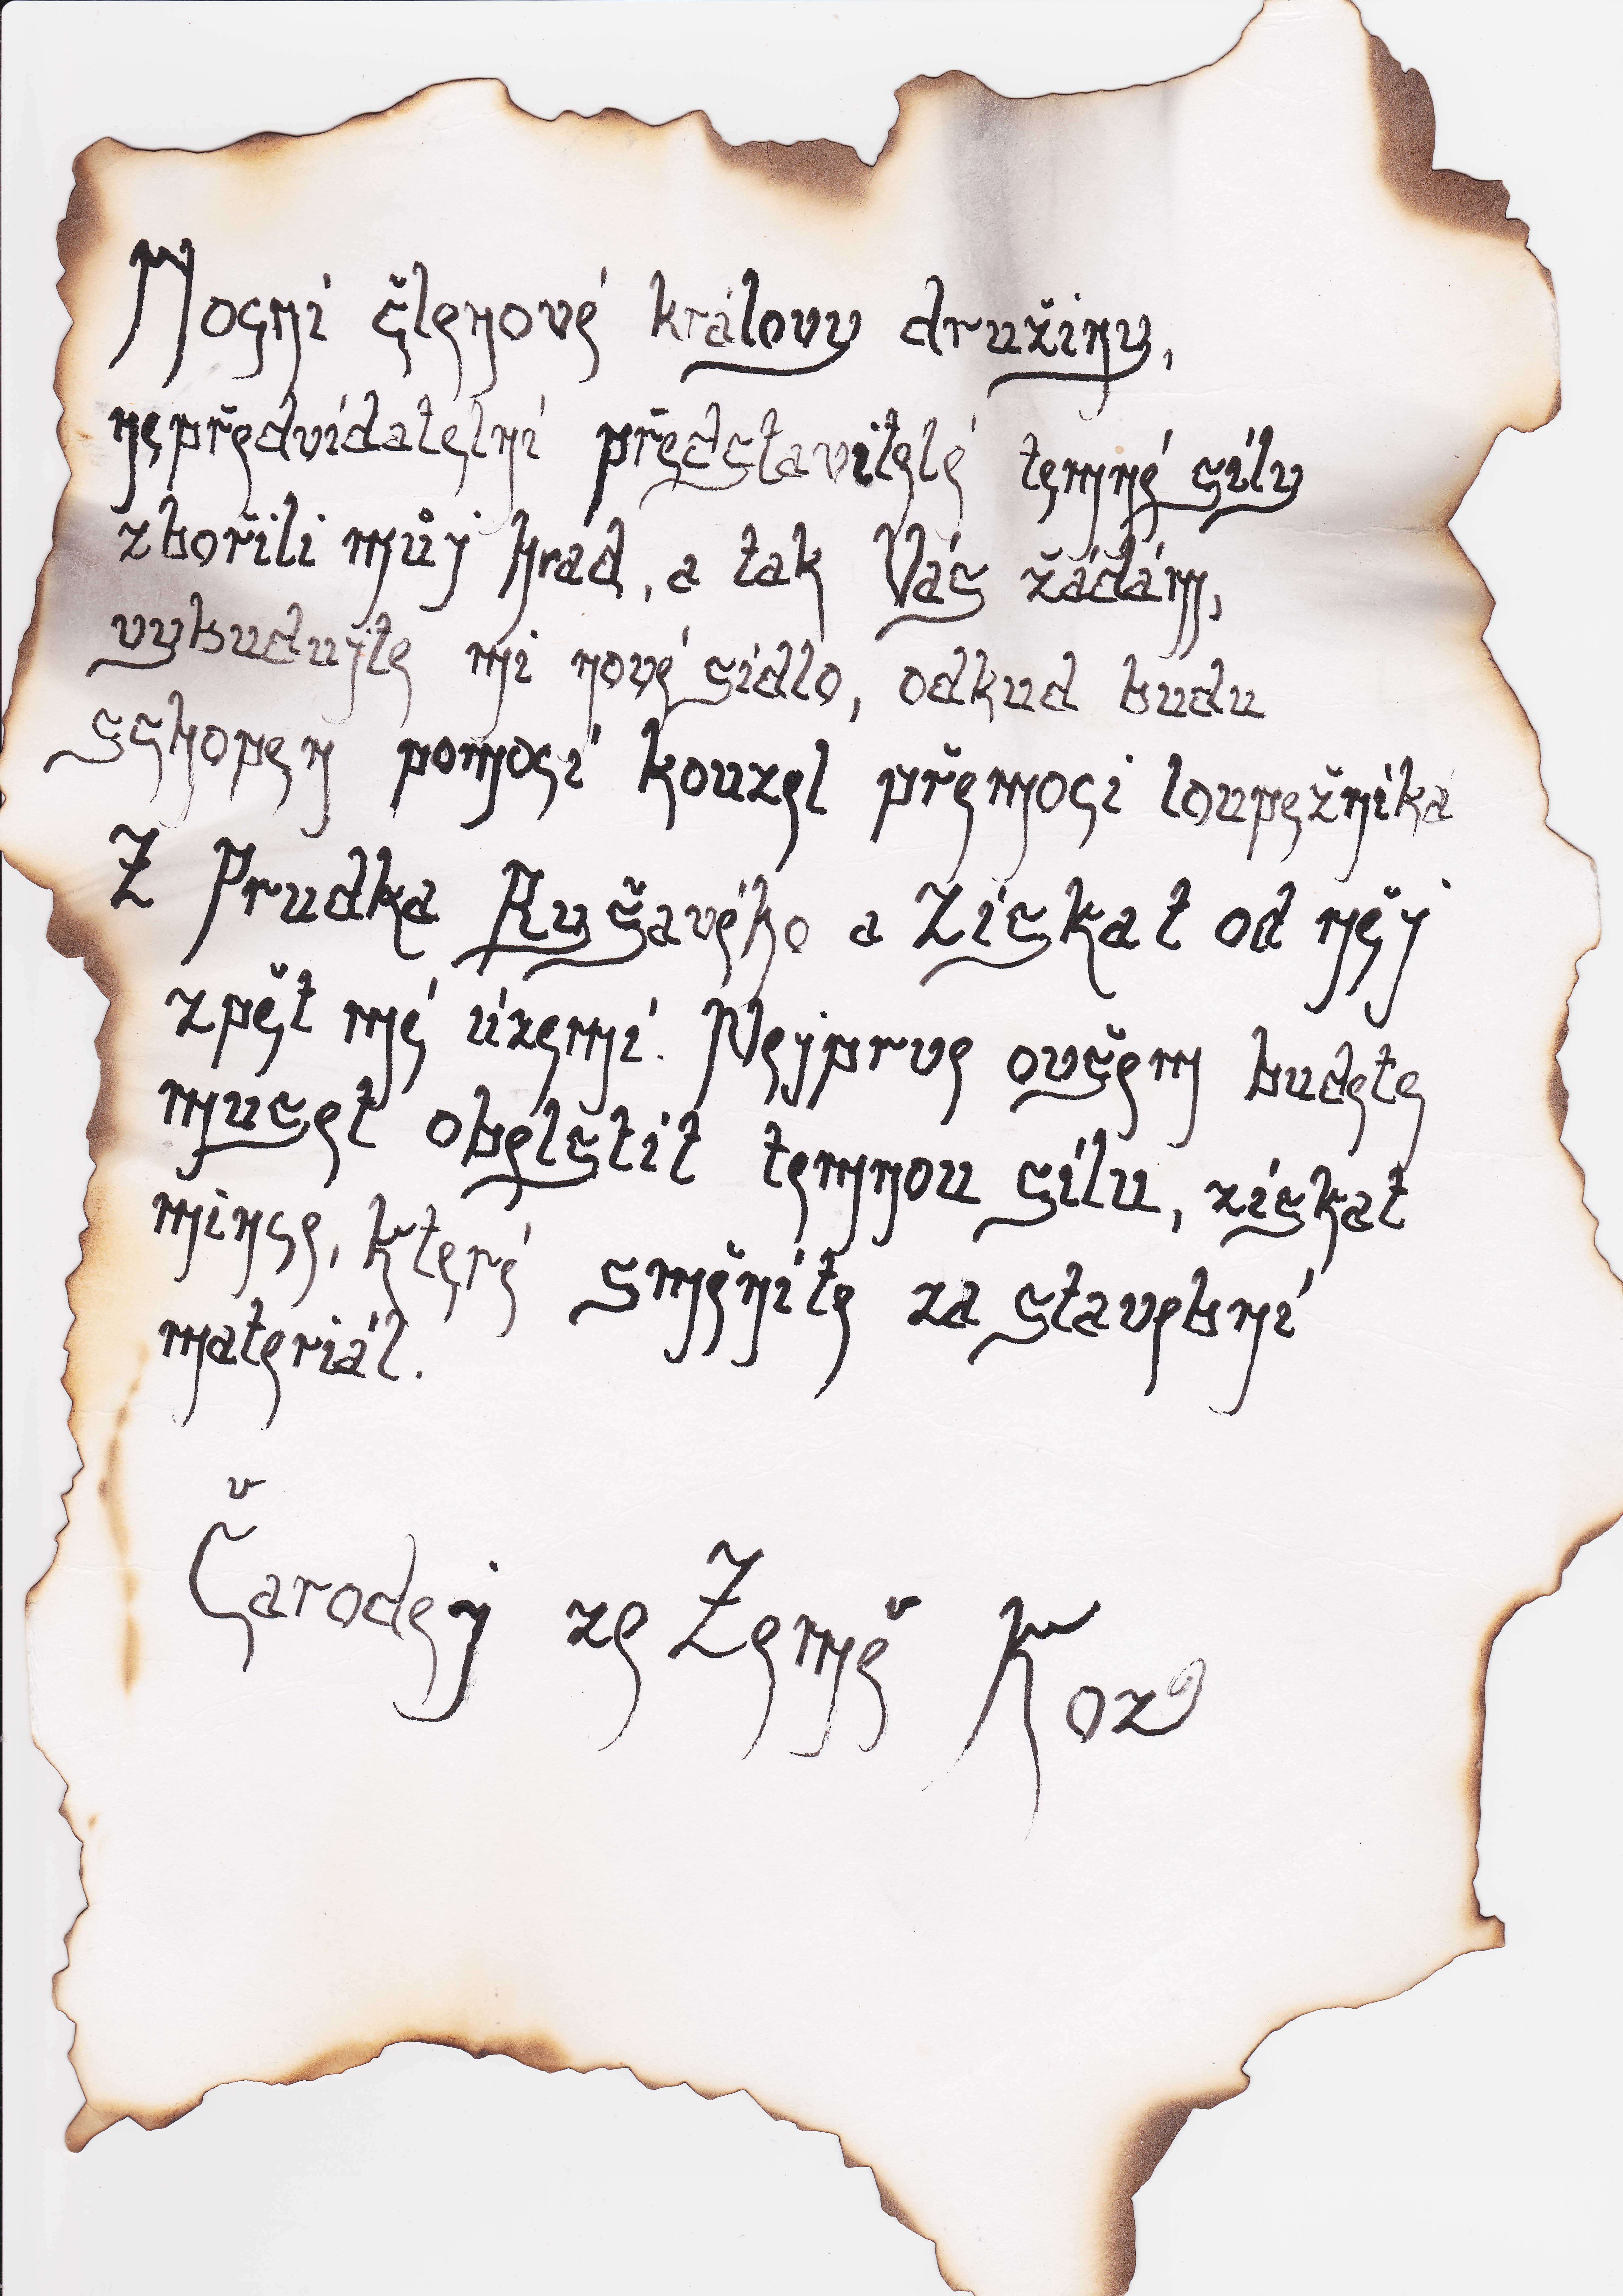 Mocní členové královy družiny,
nepředvídatelní představitelé temné síly
zbořili můj hrad, a tak Vás žádám,
vybudujte mi nové sídlo, odkud budu
schopen pomocí kouzel přemoci loupežníka
Z Prudka Rušavého a Získat od něj
zpět mé území. Nejprve ovšem budete
muset obelstít temnou sílu, získat
mince, které směníte za stavební
materiál.
Čaroděj ze Země Koz